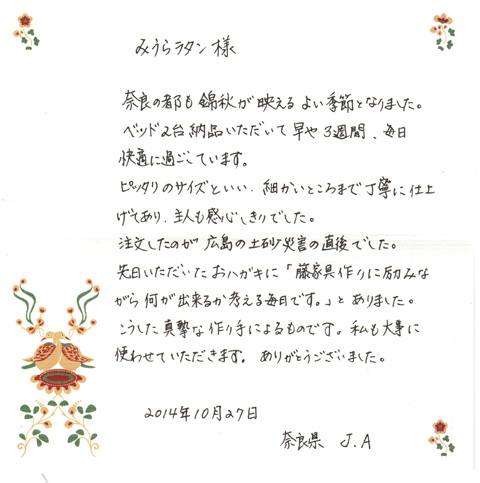 みうらラタン様
奈良の都も錦秋が映えるよい季節となりました。
ベッド2台納品いただいて早や3週間、毎日
快適に過ごしています。
ピッタリのサイズといい、細かいところまで丁寧に仕上
げてあり、主人も感心しきりでした。
注文したのが広島の土砂災害の直後でした。
先日いただいたおハガキに「藤家具作りに励みな
がら何が出来るか考える毎日です。」とありました。
こうした真摯な作り手によるものです。私も大事に
使わせていただきます。ありがとうございました。
2014年10月27日
奈良県 J.A